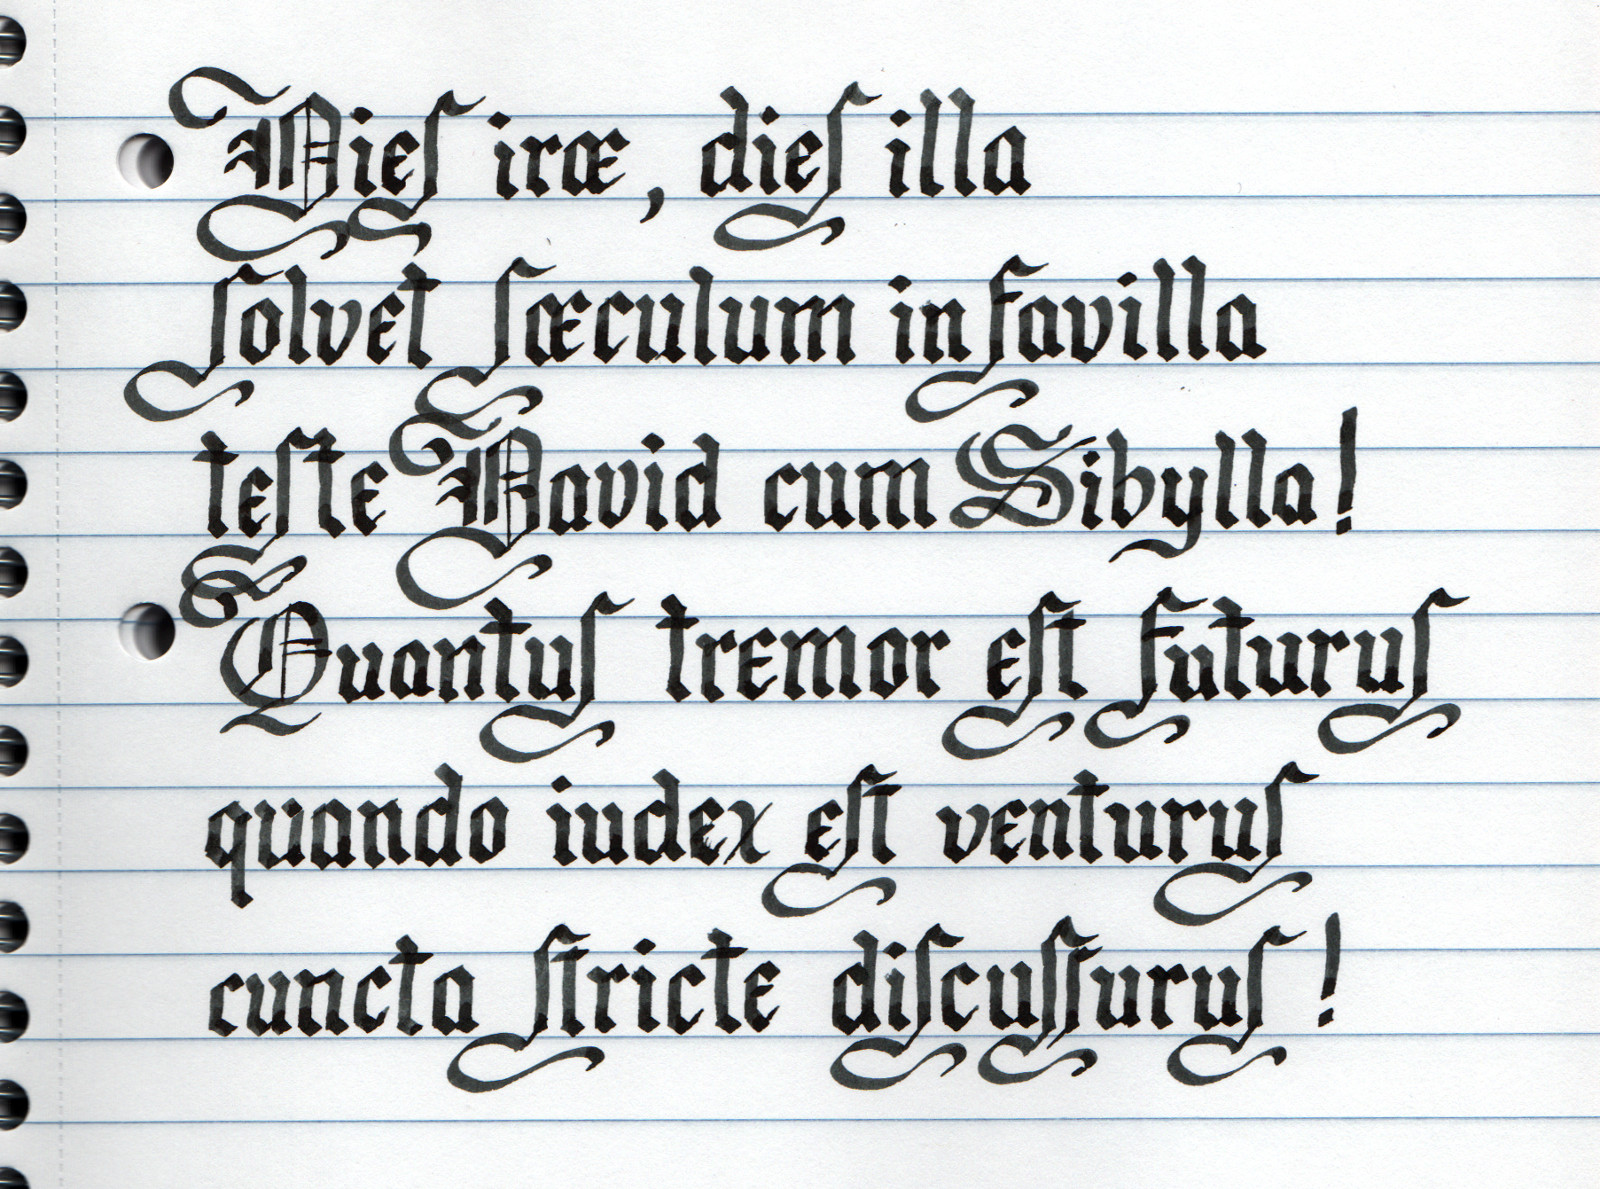 Dieſ iræ, dieſ illa
ſolvet ſæculum in favilla
teſte David cum Sibylla!
Quantuſ tremor eſt futuruſ
quando iudex eſt venturuſ
cuncta ſtricte diſcuſſuruſ!